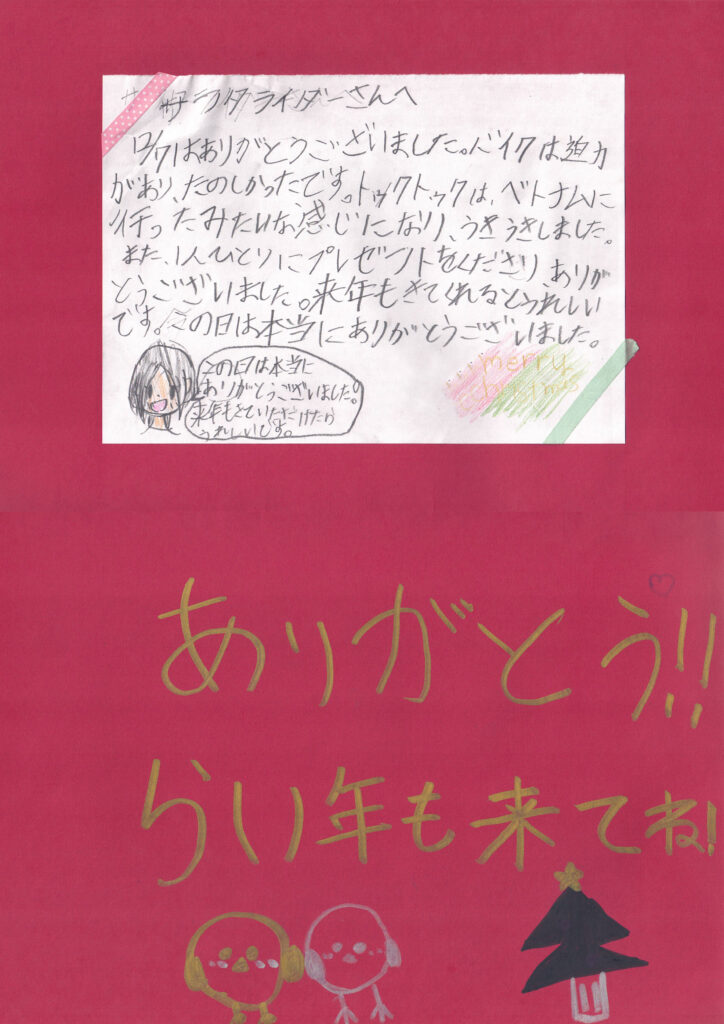 サンタライダーさんへ
はありがとうございました。バイクは迫力
があり、たのしかったです。トゥクトゥクは、ベトナムに
行ったみたいな感じになり、うきうきしました。
また、1人ひとりにプレゼントをくださり ありが
とうございました。来年もきてくれるとうれしい
です。この日は本当にありがとうございました。
この日は本当に
ありがとうございました。
来年もきていただけたら
うれしいです。
merry
ありがとう!!
らい年も来てね!